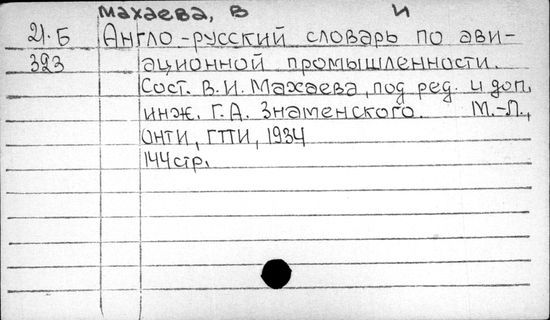 Махаева, В И
21.Б Англо-русский словарь по ави-
323 ационной промышленности.
Сост. В.И. Махаева, под ред. и доп.
инж. Г.А. Знаменского. М.-Л.,
ОНТИ, ГТТИ, 1934
144стр.